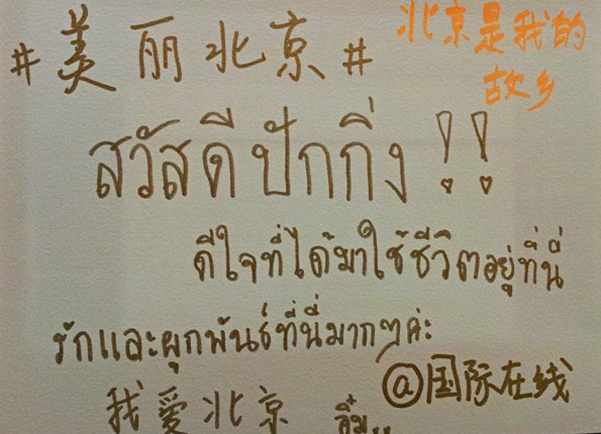 #美丽北京#
北京是我的
故乡
สวัสดีปักกิ่ง!!
ดีใจที่ได้มาใช้ชีวิตอยู่ที่นี่
รักและผูกพันธ์ที่นี่มากๆค่ะ
@国际在线
我爱北京 อิ๋ม..